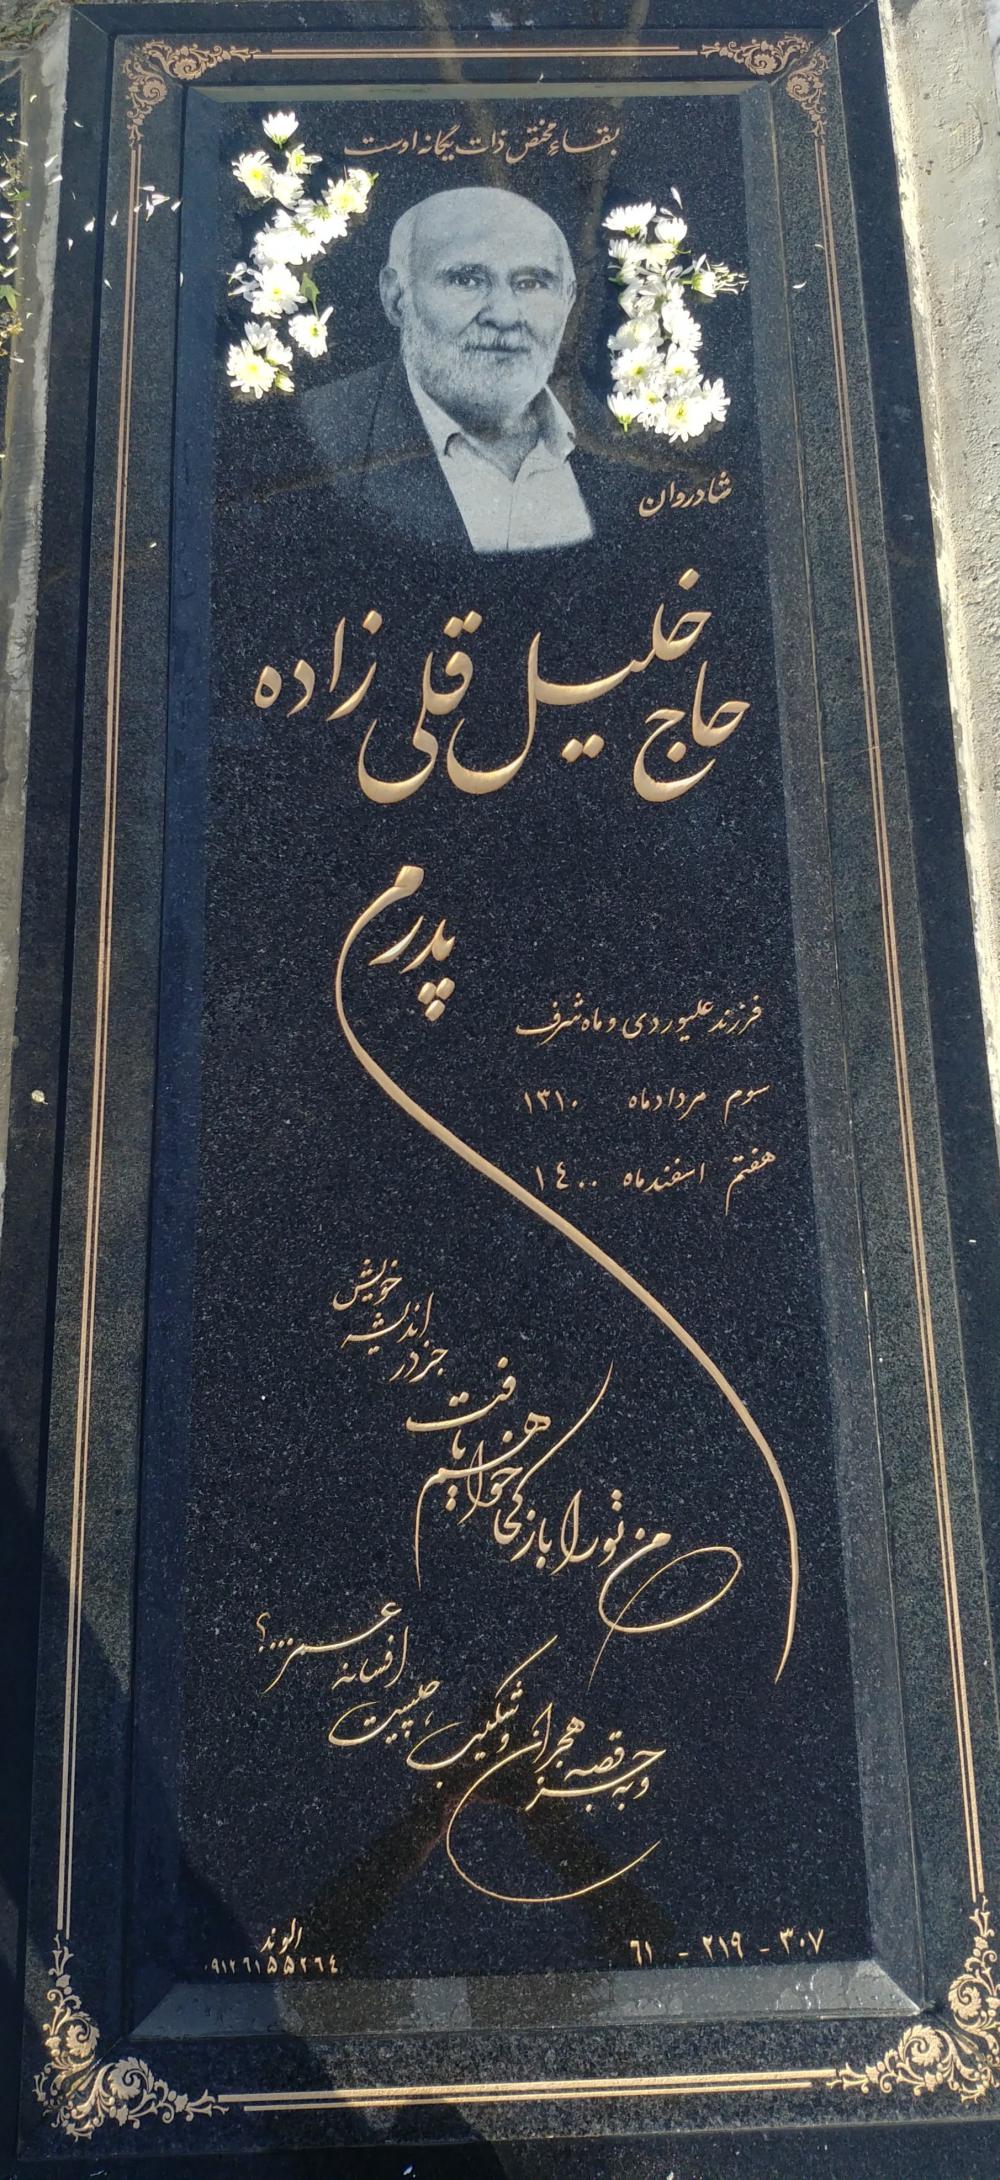 بقاء مختص ذات یگانه اوست
شادروان
حاج خلیل قلی زاده
پدرم
فرزند علیوردی و ماه شرف
سوم مردادماه ۱۳۱۰
هفتم اسفندماه ۱٤۰۰
من تو را باز کجا خواهم یافت
جز در اندیشه خویش
و به جز قصه هجران و شکیب
چیست افسانه عمر...؟
۳۰۷ - ۲۱۹ - ٦۱
الوند
۰۹۱۲٦۱۵۵۲٦٤